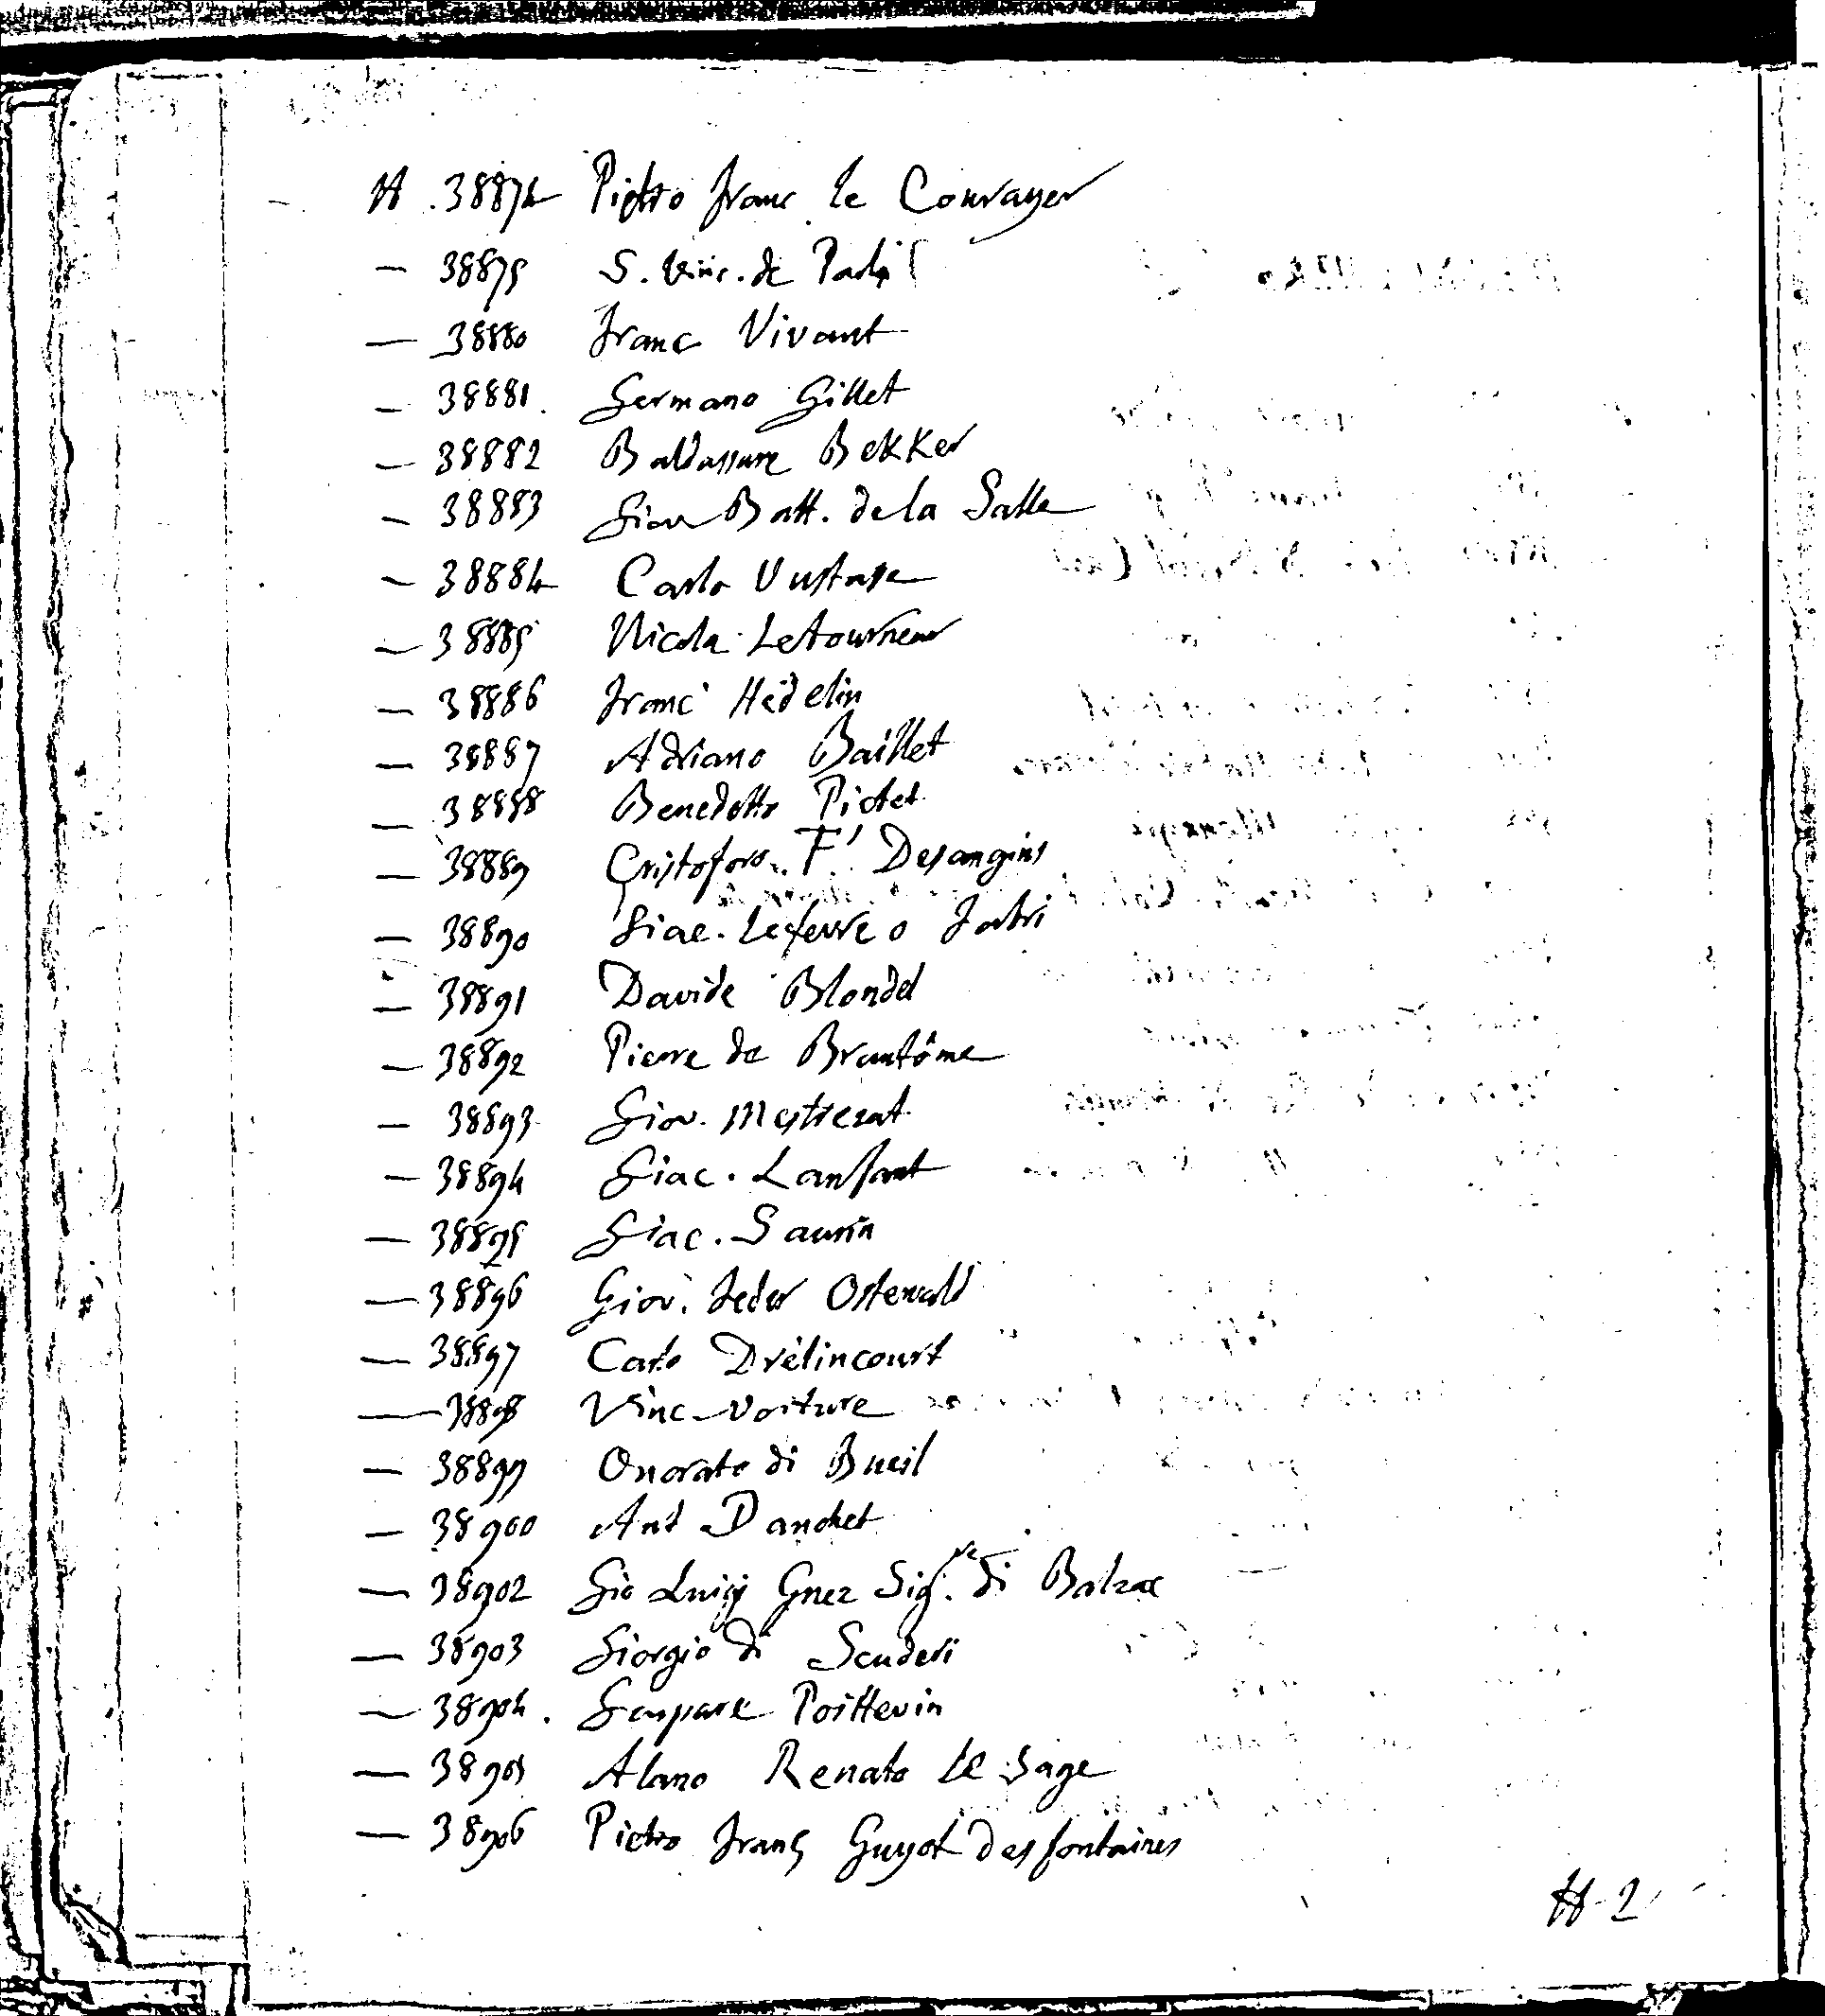 H. 38874 Pietro Franc le Courayer
— 38875 S. Vinc. de Paoli
— 38880 Franc Vivant
— 38881. Germano Gillet
— 38882 Baldassare Bekker
— 38883 Giov Batt. de la Salle
— 38884 Carlo Vustase
— 38885 Nicola Letourneur
— 38886 Franc Hédelin
— 38887 Adriano Baillet
— 38888 Benedetto Pictet
— 38889 Cristoforo F. Desangins
— 38890 Giac. Lefevre o Fabri
— 38891 Davide Blondel
— 38892 Pierre de Brantôme
— 38893 Giov. Mestrezat
— 38894 Giac. Lanfant
— 38895 Giac. Saurin
— 38896 Giov. Feder Ostervald
— 38897 Carlo Drélincourt
— 38898 Vinc Voiture
— 38899 Onorato di Bueil
— 38900 Ant Danchet
— 38902 Gio Luigi Guez Sig.re di Balzac
— 38903 Giorgio di Scuderi
— 38904. Gaspare Poittevin
— 38905 Alano Renato le Sage
— 38906 Pietro Franc Guyot Desfontaines
H-2